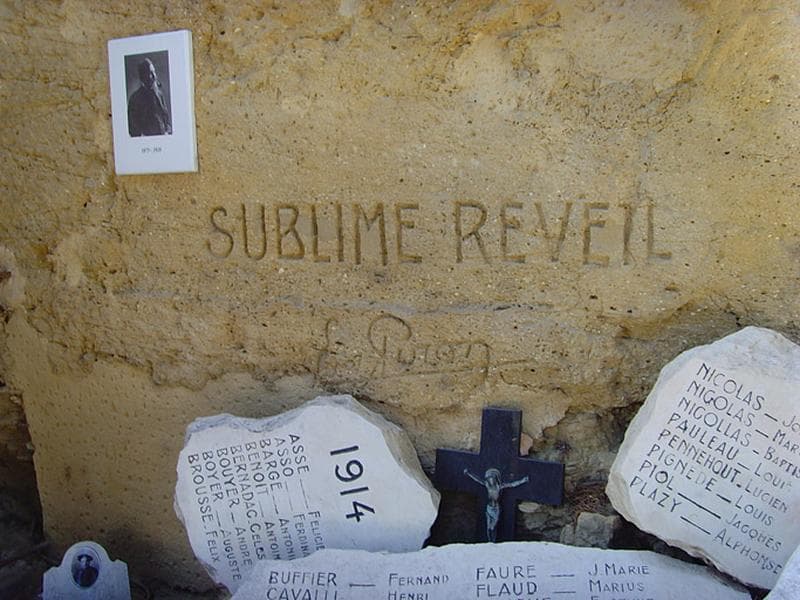 SUBLIME REVEIL
1914
ASSE — FELICIE
ASSO — FERDIN
BARGE — ANTONIN
BENOIT — ANTOIN
BERNADAC CELES
BOUYER — ANDRE
BOYER — AUGUSTE
BROUSSE FELIX
NICOLAS — JO
NIGOLAS — MAR
NIGOLLAS — BAPTI
PAULEAU — LOUI
PENNEHOUT — LUCIEN
PIGNEDE — LOUIS
PIOL — JACQUES
PLAZY — ALPHONSE
BUFFIER — FERNAND
CAVALLI HENRI
FAURE — J.MARIE
FLAUD — MARIUS